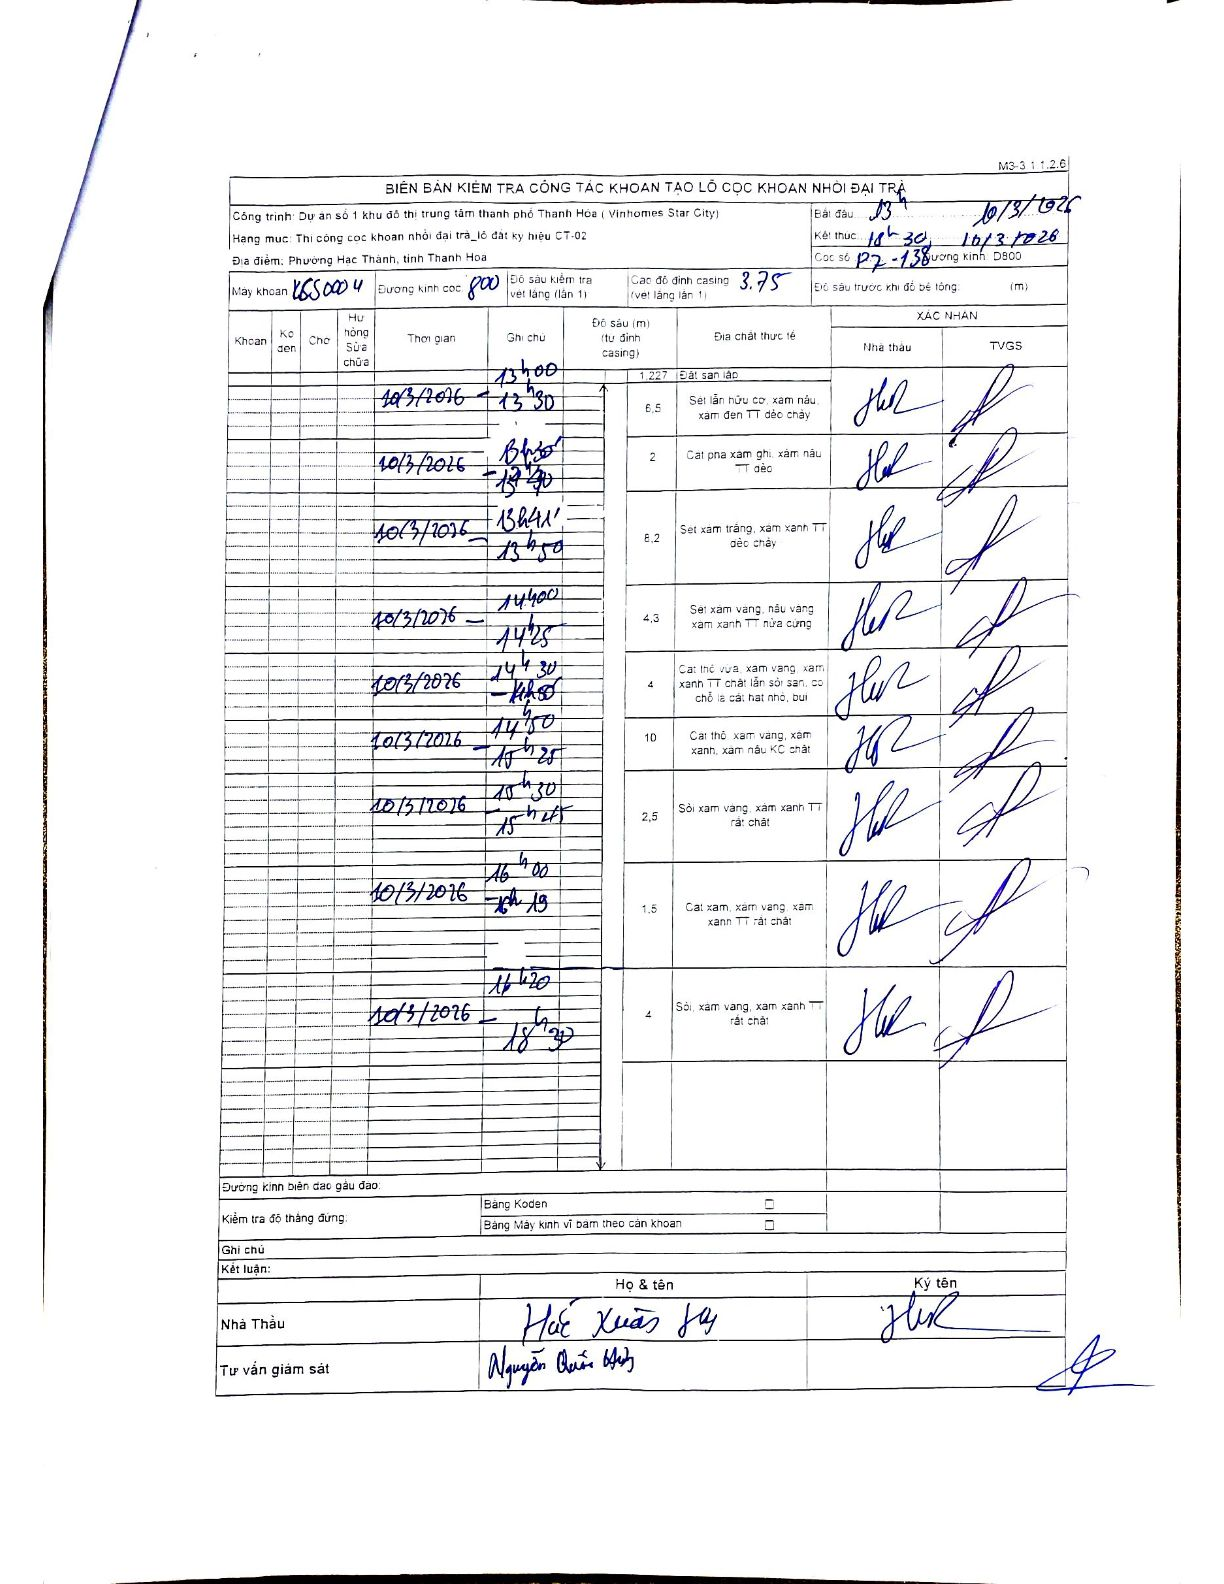 M3-3.1.1.2.6
BIÊN BẢN KIỂM TRA CÔNG TÁC KHOAN TẠO LỖ CỌC KHOAN NHỒI ĐẠI TRÀ
Công trình: Dự án số 1 khu đô thị trung tâm thành phố Thanh Hóa ( Vinhomes Star City)
Bắt đầu 13h 10/3/2026
Hạng mục: Thi công cọc khoan nhồi đại trà_lô đất ký hiệu CT-02
Kết thúc 18h30 10/3/2026
Địa điểm: Phường Hạc Thành, tỉnh Thanh Hóa
Cọc số P7-138 Đường kính D800
Máy khoan Đường kính cọc 800 Độ sâu kiểm tra vét lắng (lần 1) Cao độ đỉnh casing (vét lắng lần 1) 3.75 Độ sâu trước khi đổ bê tông: (m)
Khoan Ko đen Chờ Hư hỏng Sửa chữa Thời gian Ghi chú Độ sâu (m) (từ đỉnh casing) Địa chất thực tế XÁC NHẬN
Nhà thầu TVGS
1,227 Đất san lấp
10/3/2026 13h00 - 13h30 6,5 Sét lẫn hữu cơ, xám nâu, xám đen TT dẻo chảy
10/3/2026 2 Cát pha xám ghi, xám nâu TT dẻo
10/3/2026 13h41' - 13h50 8,2 Sét xám trắng, xám xanh TT dẻo chảy
10/3/2026 - 14h00 14h25 4,3 Sét xám vàng, nâu vàng xám xanh TT nửa cứng
10/3/2026 14h30 - 14h50 4 Cát thô vừa, xám vàng, xám xanh TT chặt lẫn sỏi sạn, có chỗ là cát hạt nhỏ, bụi
10/3/2026 14h50 - 15h25 10 Cát thô, xám vàng, xám xanh, xám nâu KC chặt
10/3/2026 15h30 - 15h45 2,5 Sỏi xám vàng, xám xanh TT rất chặt
10/3/2026 16h00 - 16h19 1,5 Cát xám, xám vàng, xám xanh TT rất chặt
10/3/2026 16h20 - 18h30 4 Sỏi, xám vàng, xám xanh TT rất chặt
Đường kính biên dao gầu đào:
Kiểm tra độ thẳng đứng: Bằng Koden ☐
Bằng Máy kinh vĩ bám theo cần khoan ☐
Ghi chú
Kết luận:
Họ & tên Ký tên
Nhà Thầu Xuân
Tư vấn giám sát Nguyễn